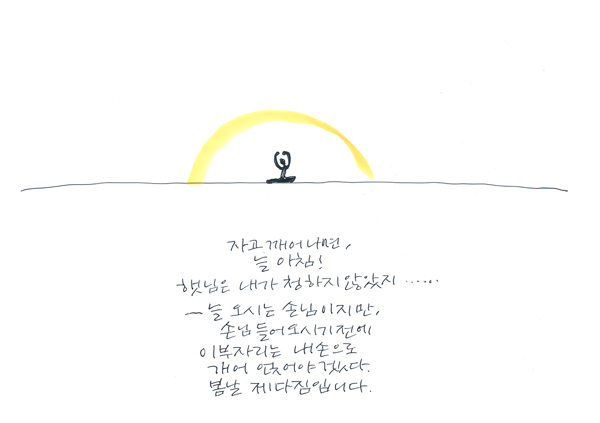 자고 깨어나면,
늘 아침!
햇님은 내가 청하지 않았지 ......
― 늘 오시는 손님이지만,
손님 들어오시기 전에
이부자리는 내 손으로
개어 얹어야겠다.
봄날 제 다짐입니다.